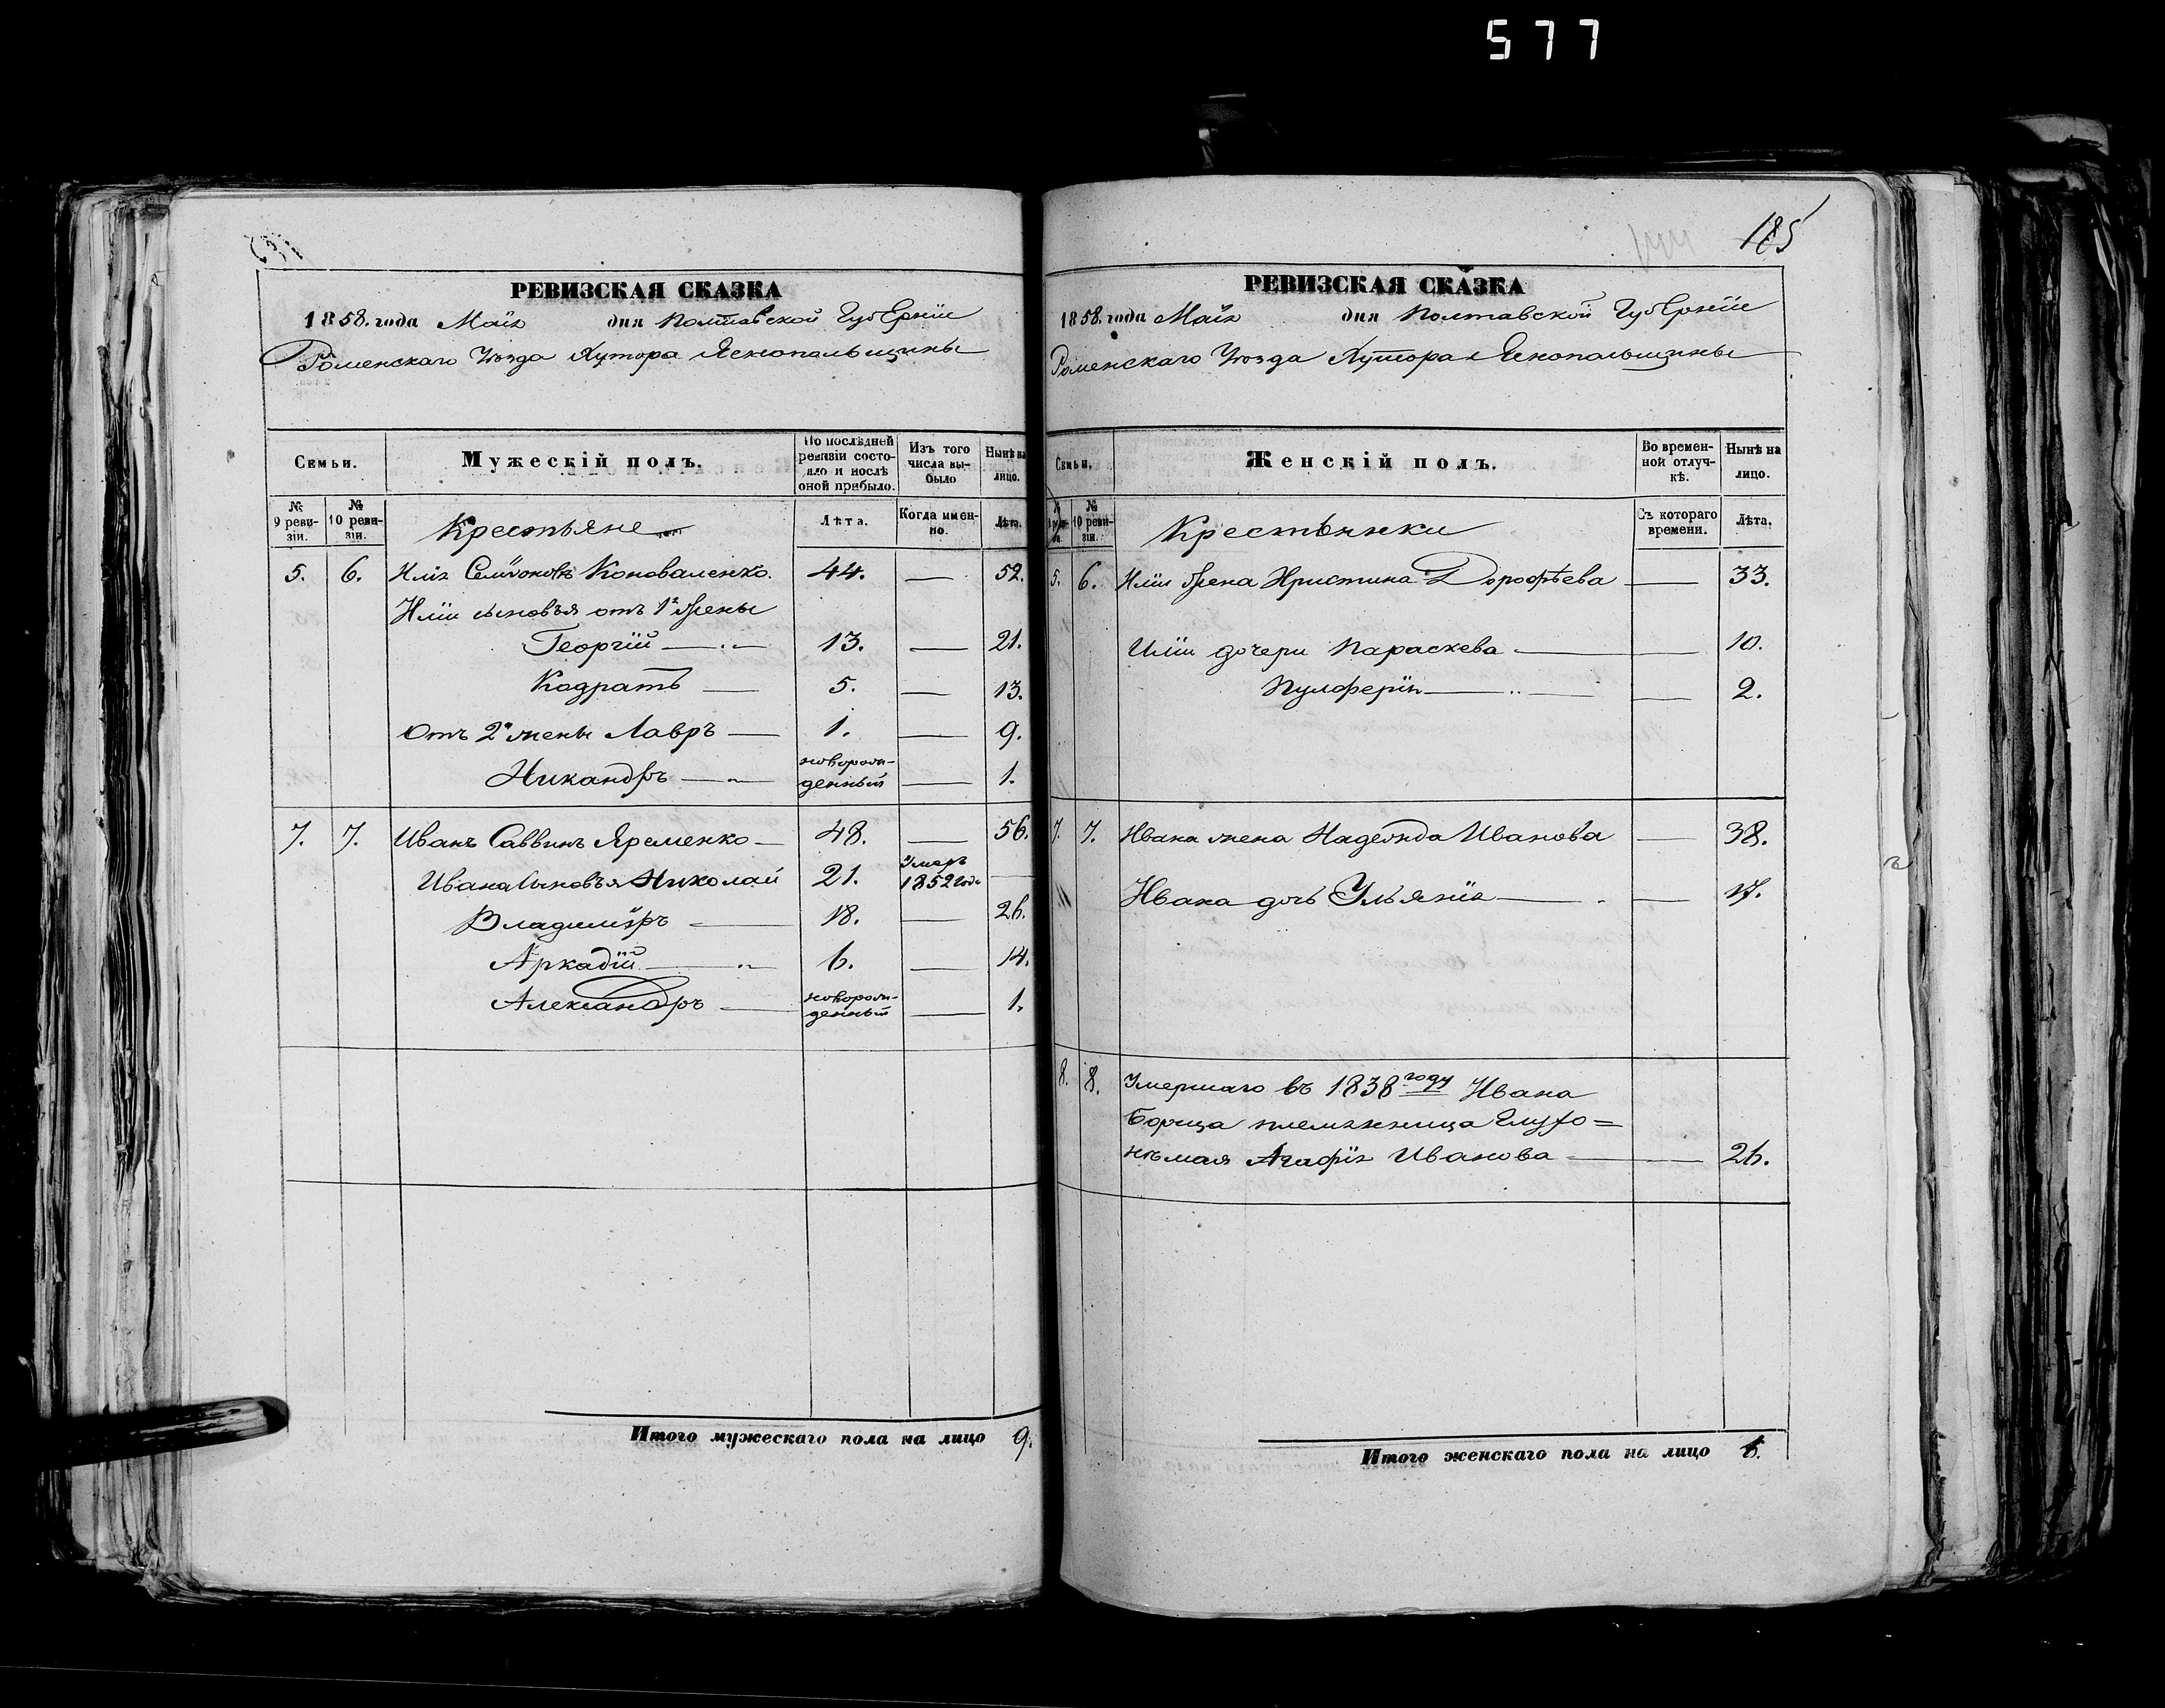 577
185
РЕВИЗСКАЯ СКАЗКА
1858. года Маія дня Полтавской Губерніи
Роменскаго Уѣзда Хутора Яснопольщины
Семьи.
Мужескій полъ.
По послѣдней ревизіи состояло и послѣ оной прибыло.
Изъ того числа выбыло
Нынѣ на лицо.
№ 9 ревизіи.
№ 10 ревизіи.
Крестьяне
Лѣта.
Когда именно.
Лѣта.
5. 6. Илія Семіоновъ Коноваленко. 44. — 52.
Иліи сыновья отъ 1й жены
Георгій — 13. — 21.
Кодратъ — 5. — 13.
Отъ 2й жены Лавръ — 1. — 9.
Никандръ — новорожденный — 1.
7. 7. Иванъ Саввинъ Яременко — 48. — 56.
Ивана сыновья Николай 21. Умеръ 1852 года —
Владиміръ — 18. — 26.
Аркадій — 6. — 14.
Александръ — новорожденный — 1.
Итого мужескаго пола на лицо 9.
РЕВИЗСКАЯ СКАЗКА
1858. года Маія дня Полтавской Губерніи
Роменскаго Уѣзда Хутора Яснопольщины
Семьи.
Женскій полъ.
Во временной отлучкѣ.
Нынѣ на лицо.
№ 9 ревизіи.
№ 10 ревизіи.
Крестьянки
Съ котораго времени.
Лѣта.
5. 6. Иліи жена Христина Дорофѣева — 33.
Иліи дочери Параскева — 10.
Пулферія — 2.
7. 7. Ивана жена Надежда Иванова — 38.
Ивана дочь Ульянія — 17.
8. 8. Умершаго въ 1838 году Ивана
Борща племянница Глухо=
нѣмая Агафія Иванова — 26.
Итого женскаго пола на лицо 6.